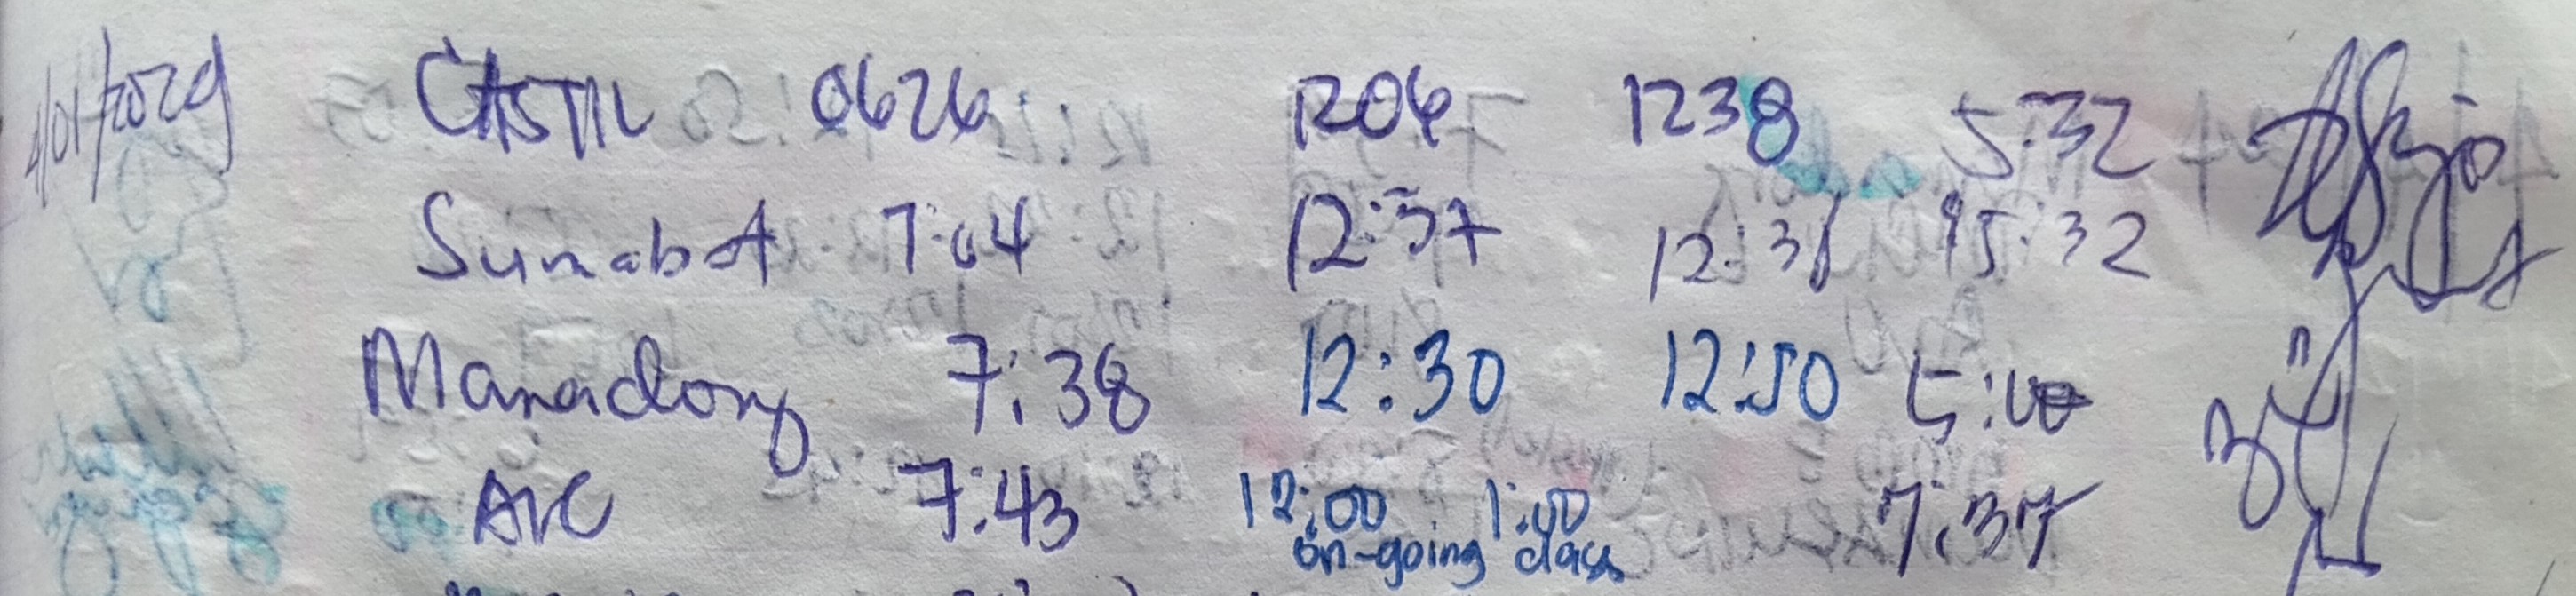 4/01/2029 CASTIL 0626 1206 1238 5:32
Sumabat 7:04 12:37 12:38 5:32
Manadong 7:38 12:30 12:50 5:10
AIC 7:43 12:00 1:00 7:37
on-going class